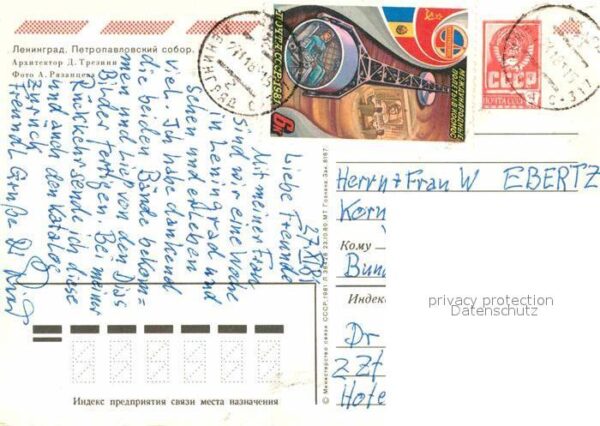 Ленинград. Петропавловский собор.
Архитектор Д. Трезини
Фото А. Рязанцева
ПОЧТА СССР·1981
МЕЖДУНАРОДНЫЕ
ПОЛЕТЫ В КОСМОС
6к
СССР
ПОЧТА СССР
ЛЕНИНГРАД
27.XI.81
Liebe Freunde
Mit meiner Frau
sind wir eine Woche
in Leningrad und
sehen und erleben
viel. Ich habe dankend
die beiden Bände bekom=
men und ließ von den Diss
Bilder fertigen. Bei meiner
Rückkehr sende ich diese
und auch den Katalog
zurück
Freundl Grüße Ihr
Herrn + Frau W EBERTZ
Korn
Кому
Bun
Индекс
privacy protection
Datenschutz
Dr
z Zt
Hote
© Министерство связи СССР. 1981
МТ Гознака. Зак. 8187.
Индекс предприятия связи места назначения